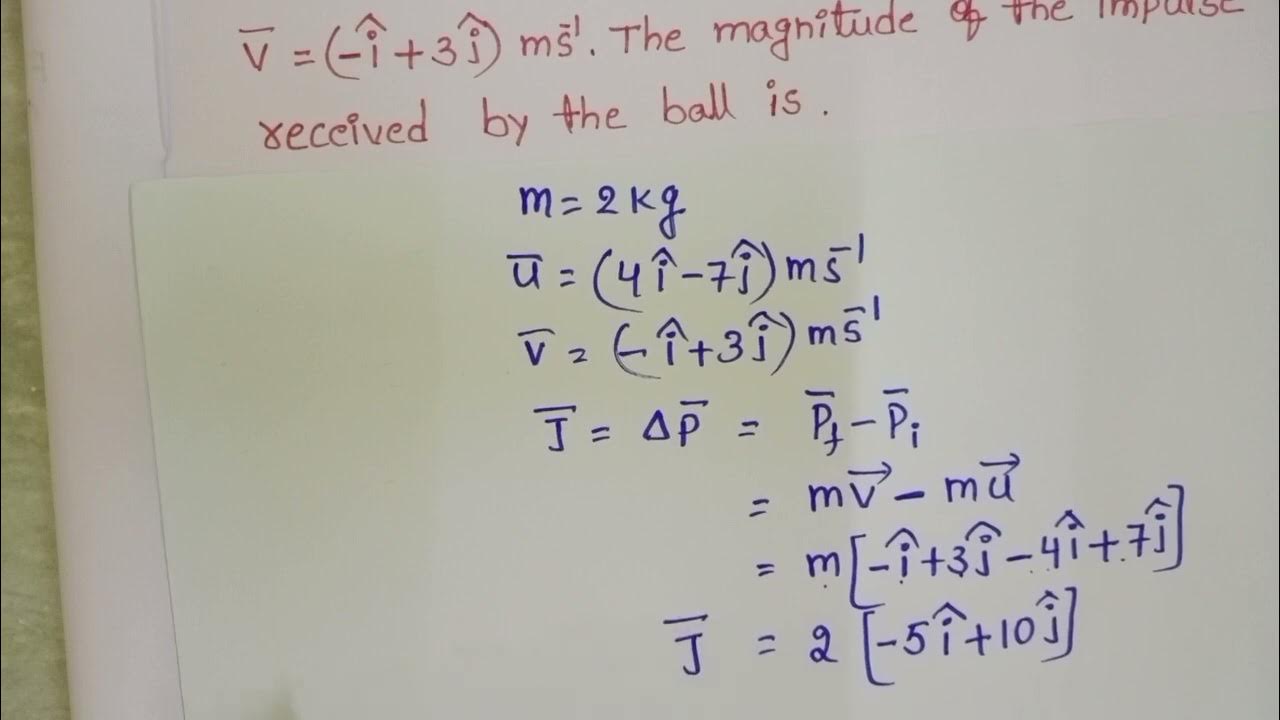 v̅ = (-î + 3ĵ) ms⁻¹. The magnitude of the impulse
received by the ball is.
m = 2 kg
u̅ = (4î - 7ĵ) ms⁻¹
v̅ = (-î + 3ĵ) ms⁻¹
J̅ = ΔP̅ = P̅f - P̅i
= mv⃗ - mu⃗
= m[-î + 3ĵ - 4î + 7ĵ]
J̅ = 2 [-5î + 10ĵ]